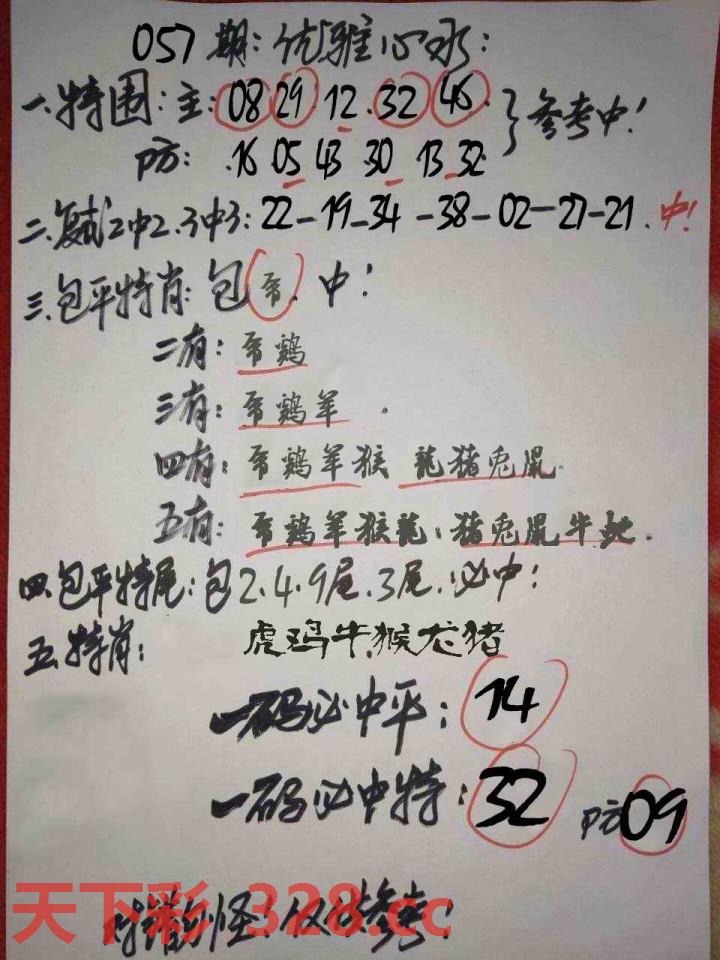 057期:优雅心水:
一.特围:主:08 29 12.32 46.
防: .16 05 43 30 13 32.
参考中!
二.复式2中2.3中3:22-19-34-38-02-27-21.中!
三.包平特肖:包虎.中!
二有:虎鸡
三有:虎鸡羊.
四有:虎鸡羊猴 龍猪兔鼠.
五有:虎鸡羊猴龍:猪兔鼠牛蛇.
四.包平特尾:包2.4.9尾.3尾.必中!
五.特肖: 虎鸡牛猴龙猪
一码必中平:14
一码必中特:32 防09
错勿怪!仅供参考!
天下彩 328.cc